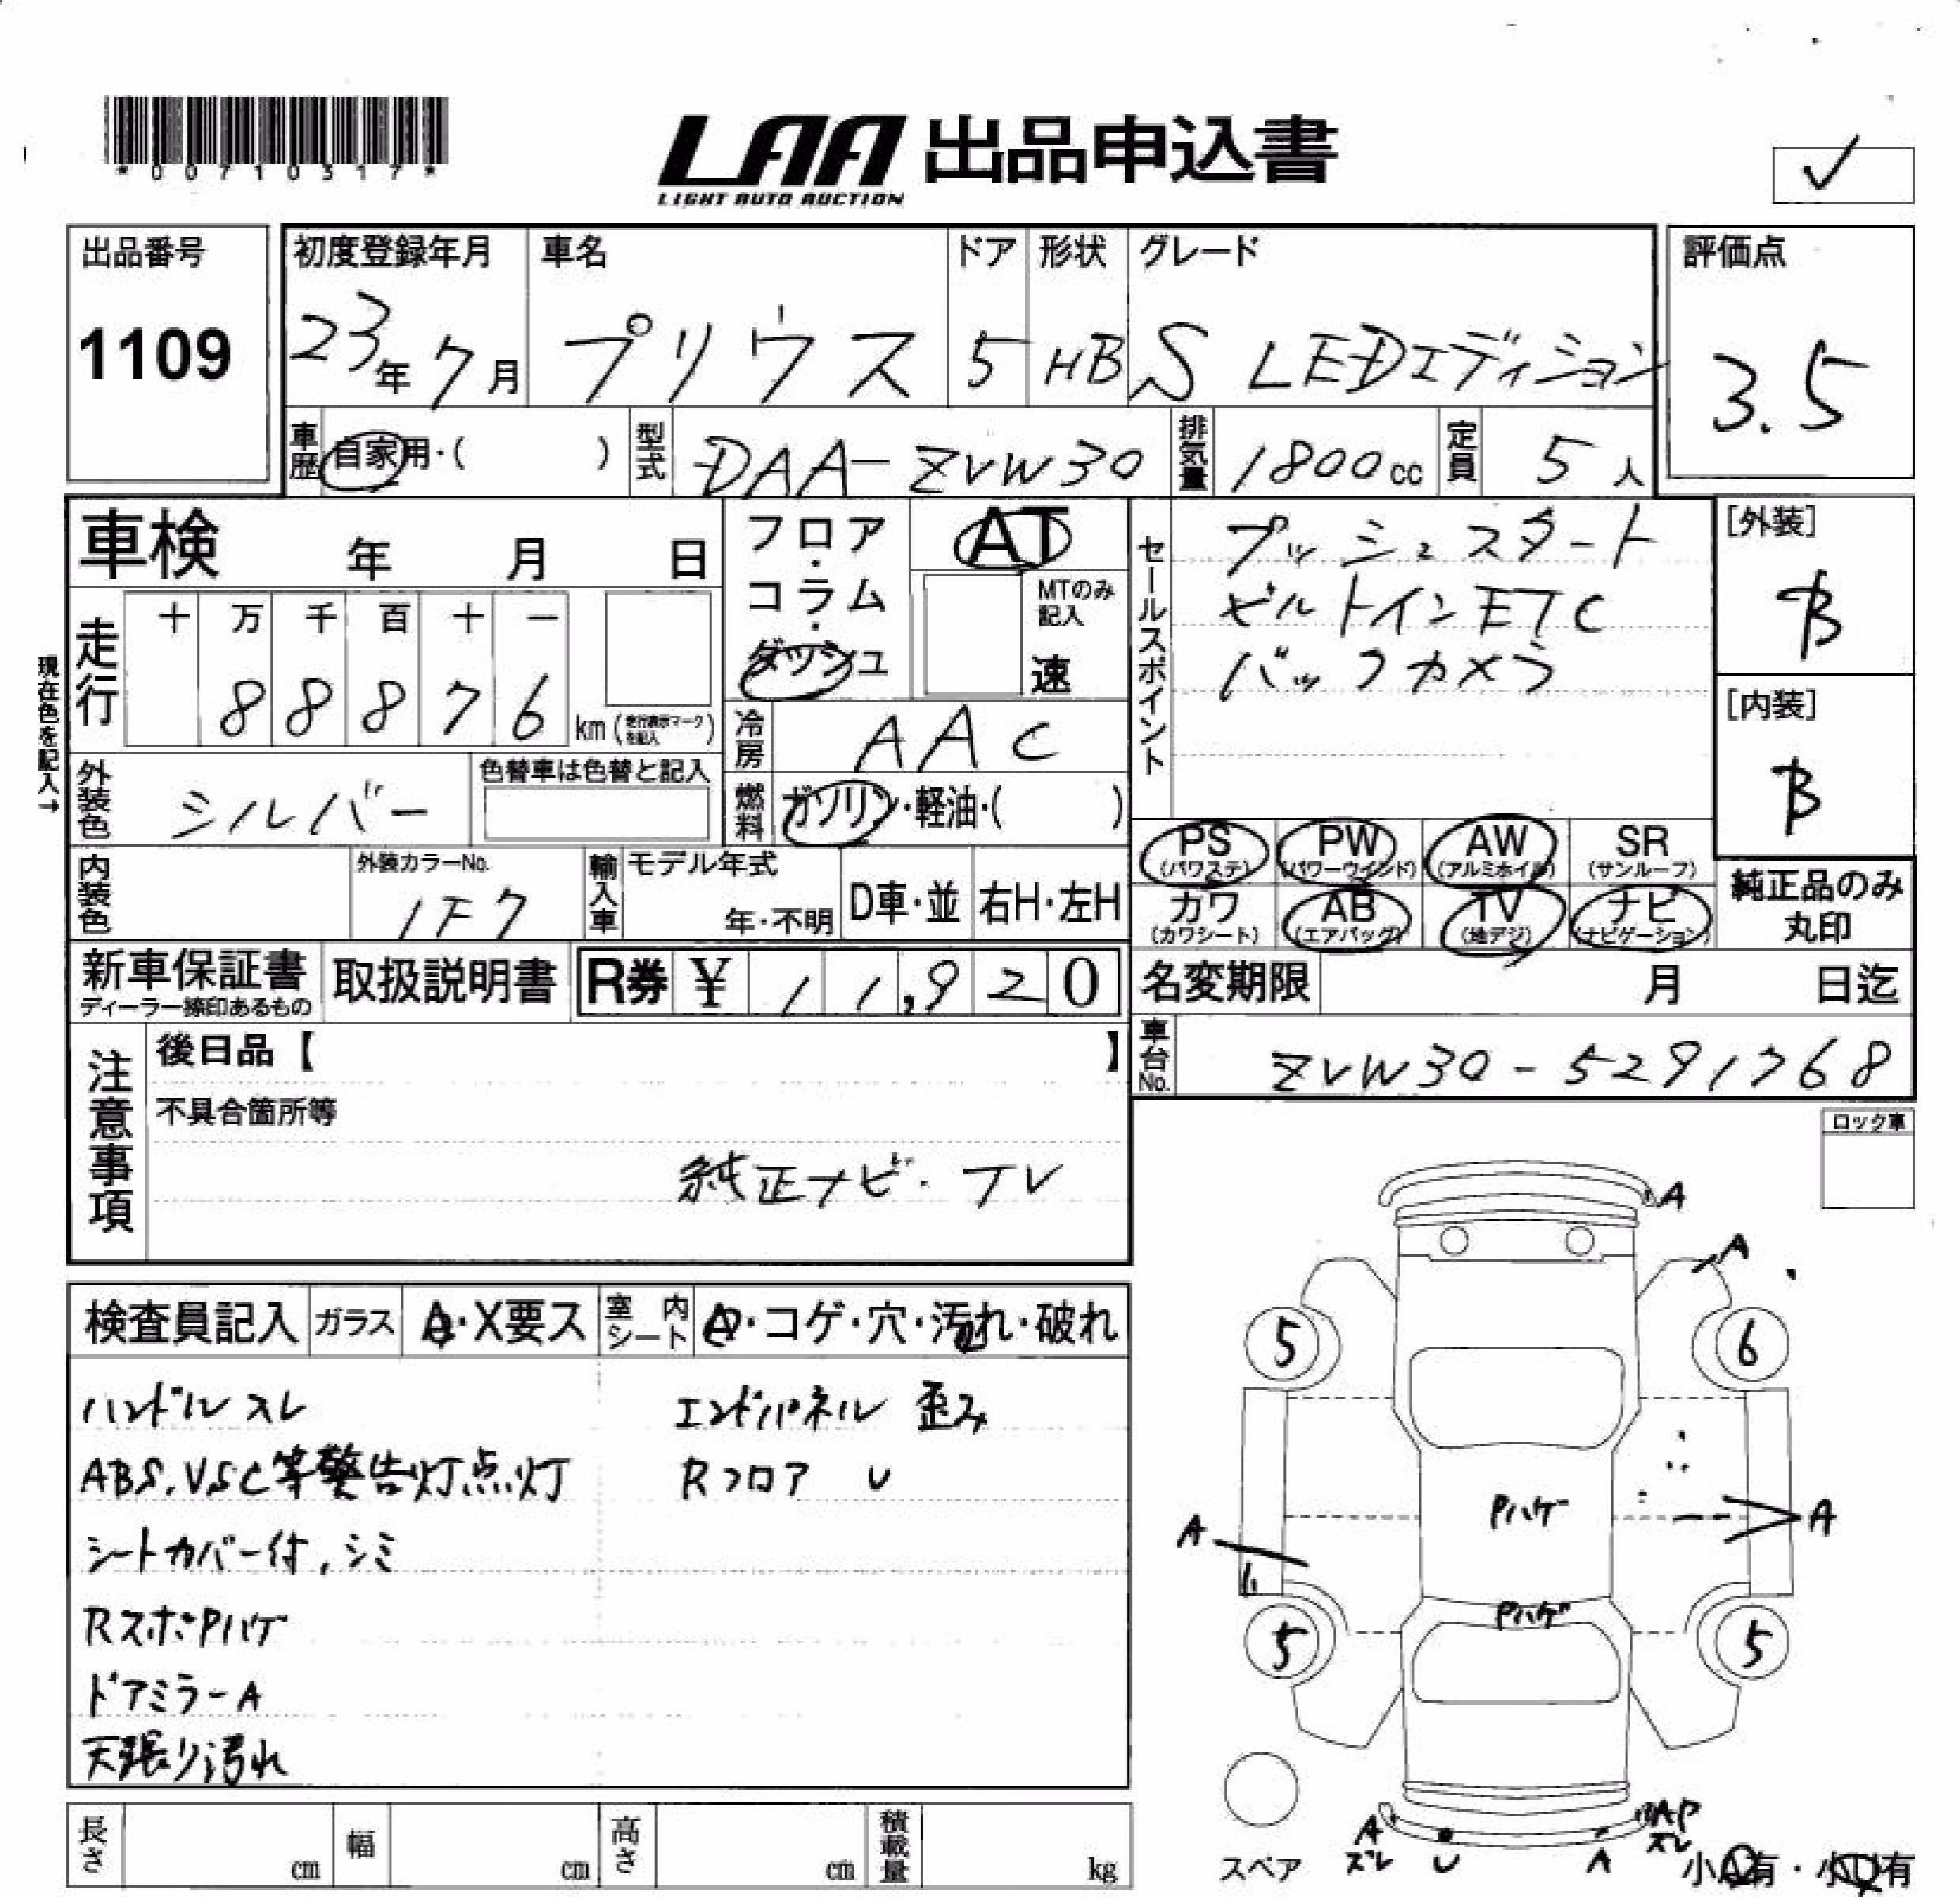 *00710317*
LAA 出品申込書
LIGHT AUTO AUCTION
✓
出品番号
1109
初度登録年月
23年 7月
車名
プリウス
ドア
5
形状
HB
グレード
S LEDエディション
評価点
3.5
車歴 自家用・( )
型式 DAA-ZVW30
排気量 1800cc
定員 5人
車検 年 月 日
走行
十 万 千 百 十 一
8 8 8 7 6 km(走行表示マークを記入)
現在色を記入→
外装色 シルバー
色替車は色替と記入
内装色
外装カラーNo.
1F7
輸入車
モデル年式
年・不明
D車・並
右H・左H
フロア・コラム・ダッシュ
AT
MTのみ記入
速
冷房 AAC
燃料 ガソリン・軽油・( )
セールスポイント
プッシュスタート
ビルトインETC
バックカメラ
[外装]
B
[内装]
B
PS (パワステ)
PW (パワーウインド)
AW (アルミホイル)
SR (サンルーフ)
カワ (カワシート)
AB (エアバッグ)
TV (地デジ)
ナビ (ナビゲーション)
純正品のみ丸印
新車保証書
ディーラー捺印あるもの
取扱説明書
R券 ¥ 11,920
名変期限 月 日迄
車台No. ZVW30-5291768
注意事項
後日品【 】
不具合箇所等
純正ナビ・TV
ロック車
検査員記入
ガラス
A・X要ス
室内シート
・コゲ・穴・汚れ・破れ
ハンドルスレ
エンドパネル 歪み
ABS,VSC等警告灯点灯
Rフロア U
シートカバー付,シミ
RスポPハゲ
ドアミラーA
天張り汚れ
長さ cm
幅 cm
高さ cm
積載量 kg
A
A
5
6
Pハゲ
A
A
Pハゲ
5
5
スペア
A
ズレ
U
A
AP
ズレ
小A有・小U有